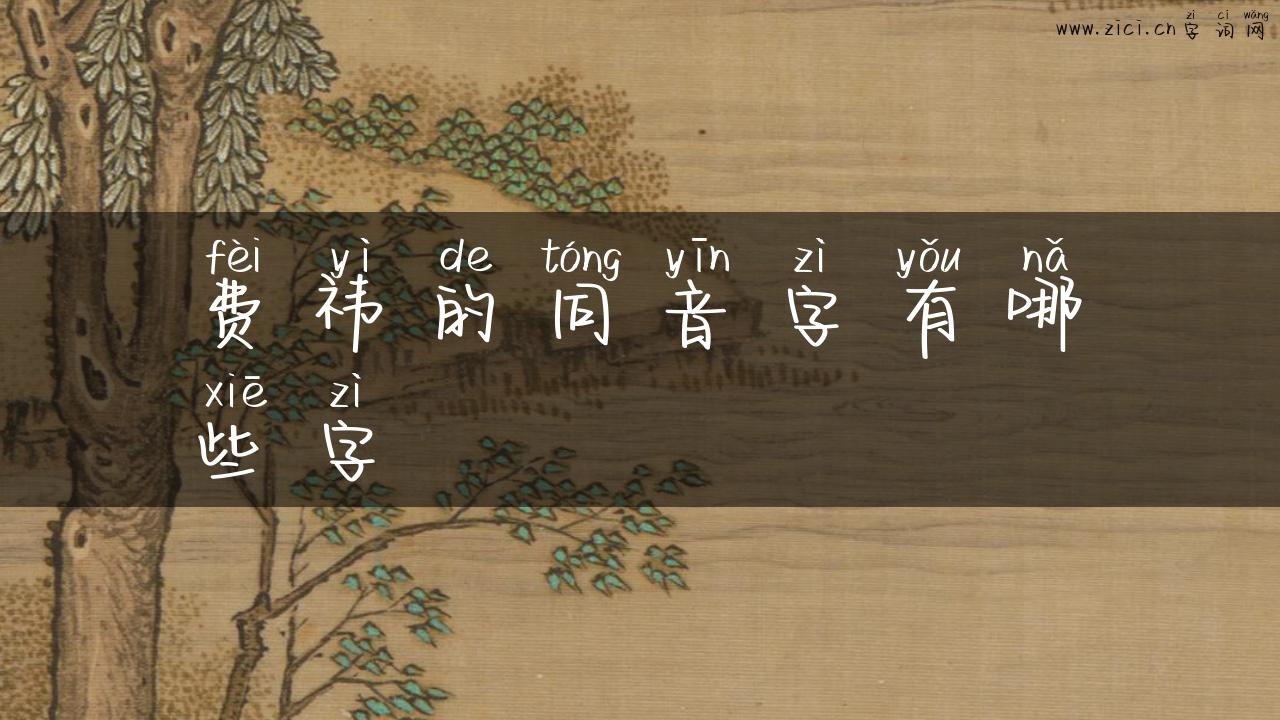 zì cí wǎng
www.zici.cn 字词网
fèi yì de tóng yīn zì yǒu nǎ
费祎的同音字有哪
xiē zì
些字